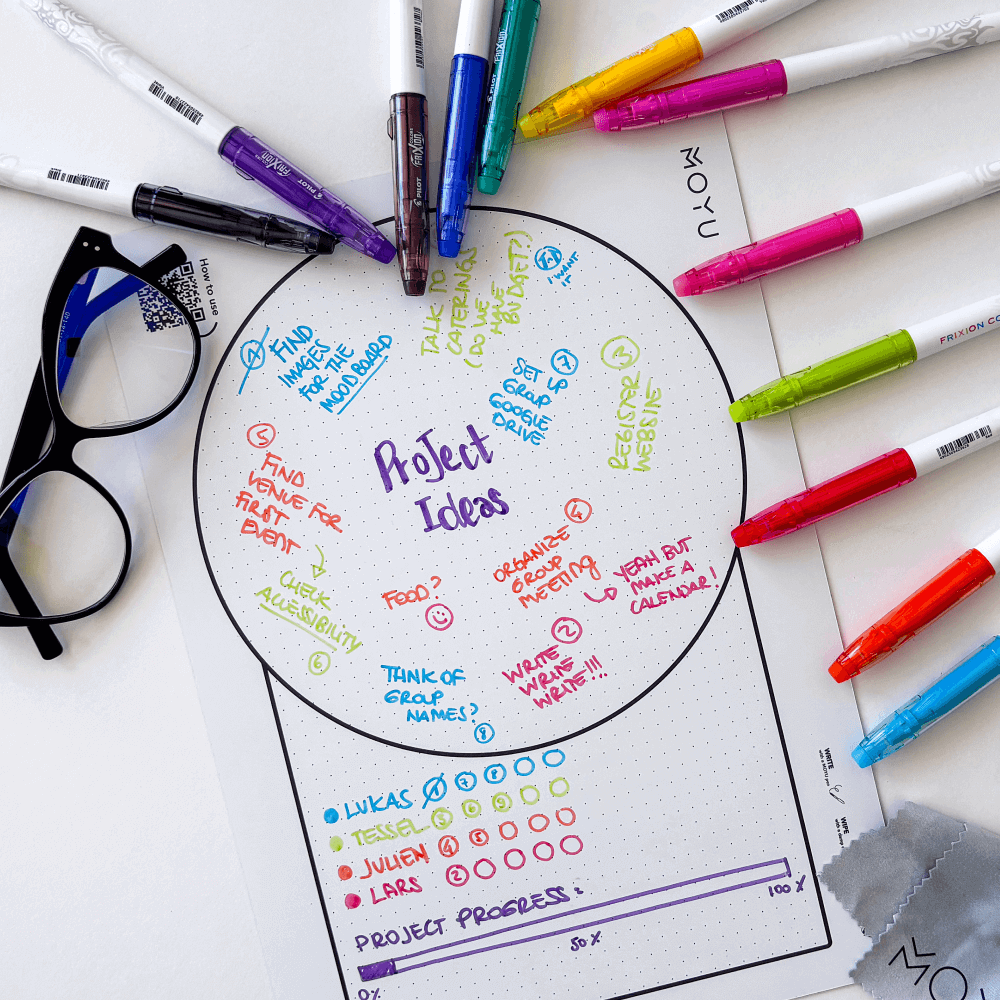 FRIXION
PILOT
FRIXION
COLORS
PILOT
PILOT
FRIXION CO
MOYU
How to use
TALK TO
CATERINGS
(DO WE
HAVE
BUDGET?)
I WANT
IT
1
FIND
IMAGES
FOR THE
MOODBOARD
7
SET UP
GROUP
GOOGLE
DRIVE
3
REGISTER
WEBSITE
5
FIND
VENUE FOR
FIRST
EVENT
Project
Ideas
4
ORGANIZE
GROUP
MEETING
YEAH BUT
MAKE A
CALENDAR!
CHECK
ACCESSIBILITY
6
FOOD?
2
WRITE
WRITE
WRITE!!!
THINK OF
GROUP
NAMES?
8
LUKAS 1 7 8
TESSEL 3 6 9
JULIEN 4 5
LARS 2
PROJECT PROGRESS:
0% 50% 100%
WRITE
with a MOYU pen
WIPE
MOY